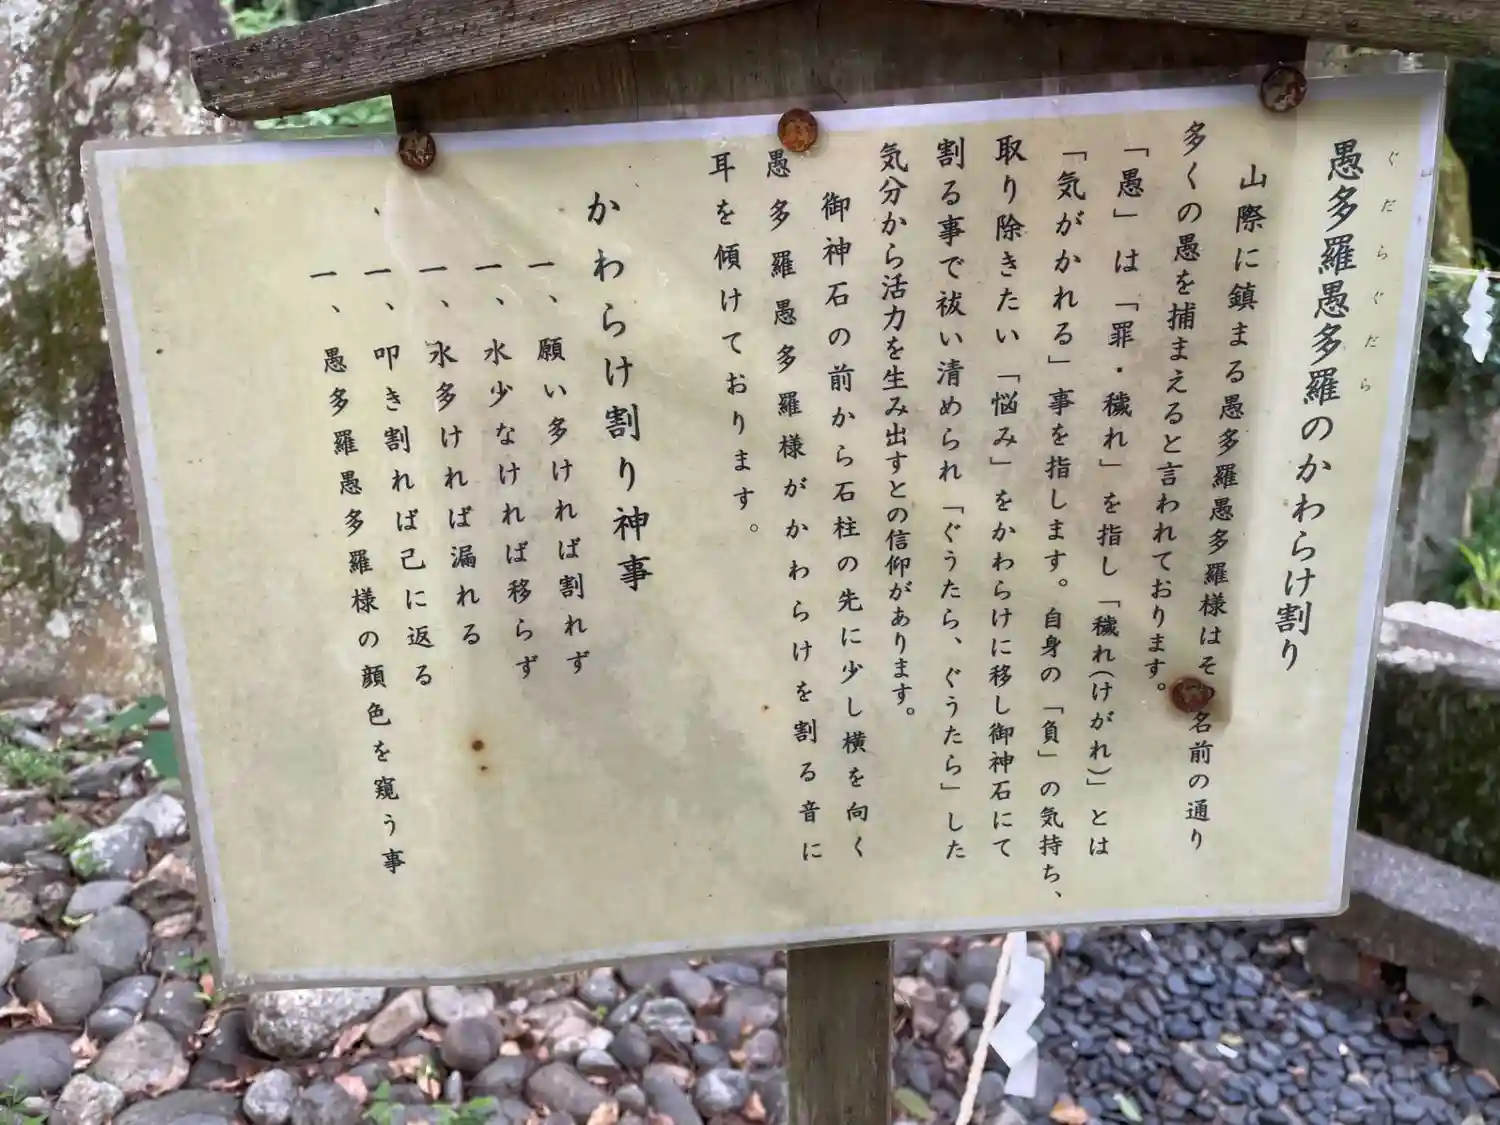 ぐだらぐだら
愚多羅愚多羅のかわらけ割り
山際に鎮まる愚多羅愚多羅様はそ 名前の通り
多くの愚を捕まえると言われております。
「愚」は「罪・穢れ」を指し「穢れ(けがれ)」とは
「気がかれる」事を指します。自身の「負」の気持ち、
取り除きたい「悩み」をかわらけに移し御神石にて
割る事で祓い清められ「ぐうたら、ぐうたら」した
気分から活力を生み出すとの信仰があります。
御神石の前から石柱の先に少し横を向く
愚多羅愚多羅様がかわらけを割る音に
耳を傾けております。
かわらけ割り神事
一、願い多ければ割れず
一、水少なければ移らず
一、水多ければ漏れる
一、叩き割れば己に返る
一、愚多羅愚多羅様の顔色を窺う事